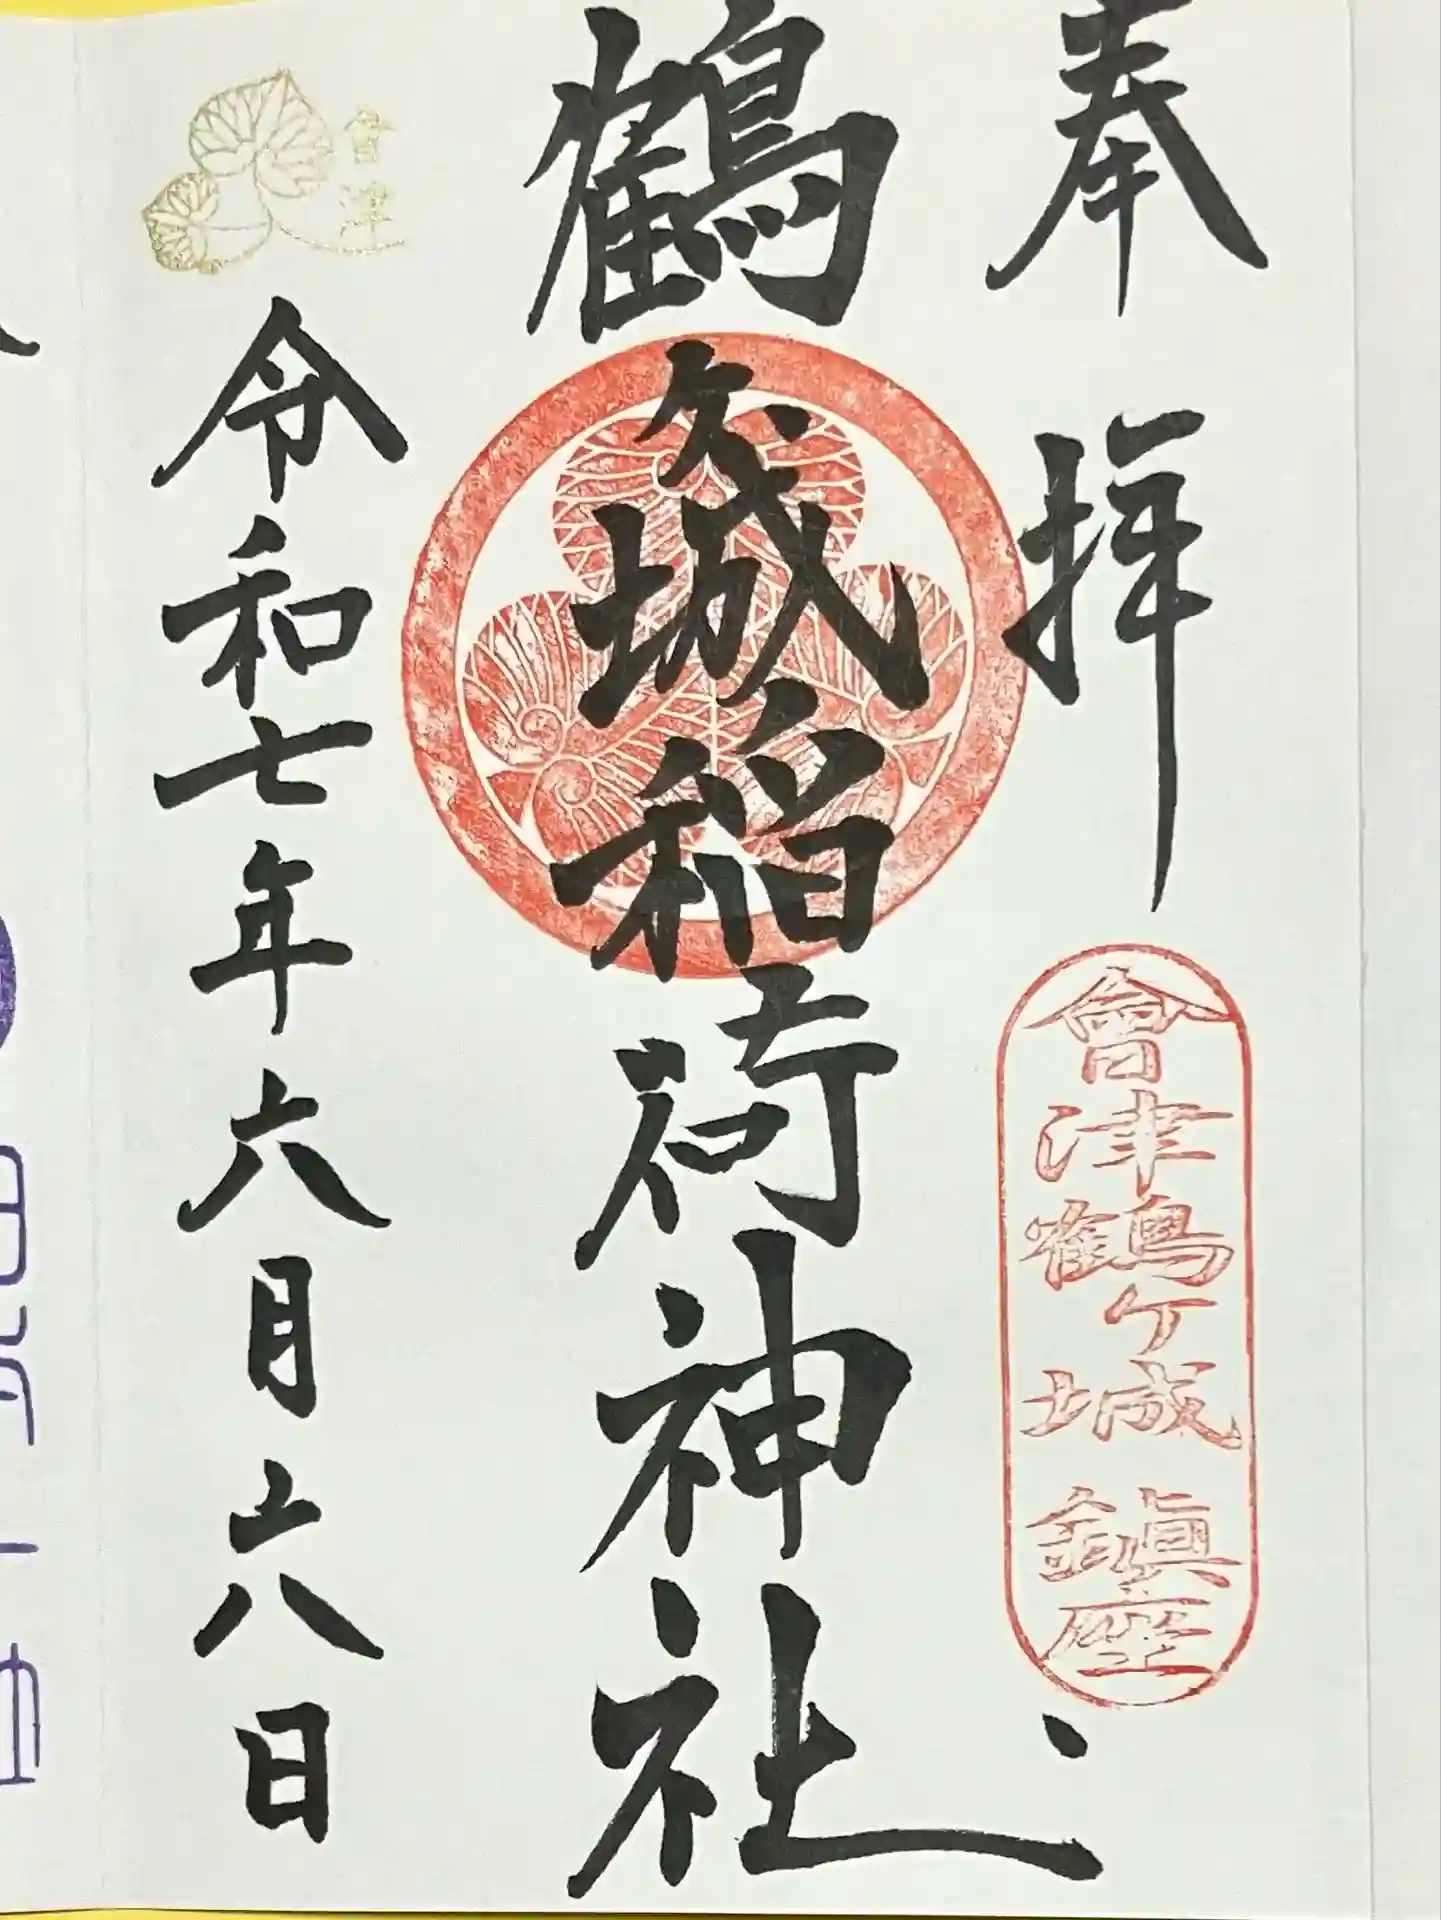 奉拝
會津鶴ケ城鎮座
鶴ケ城稲荷神社
會津
令和七年六月六日